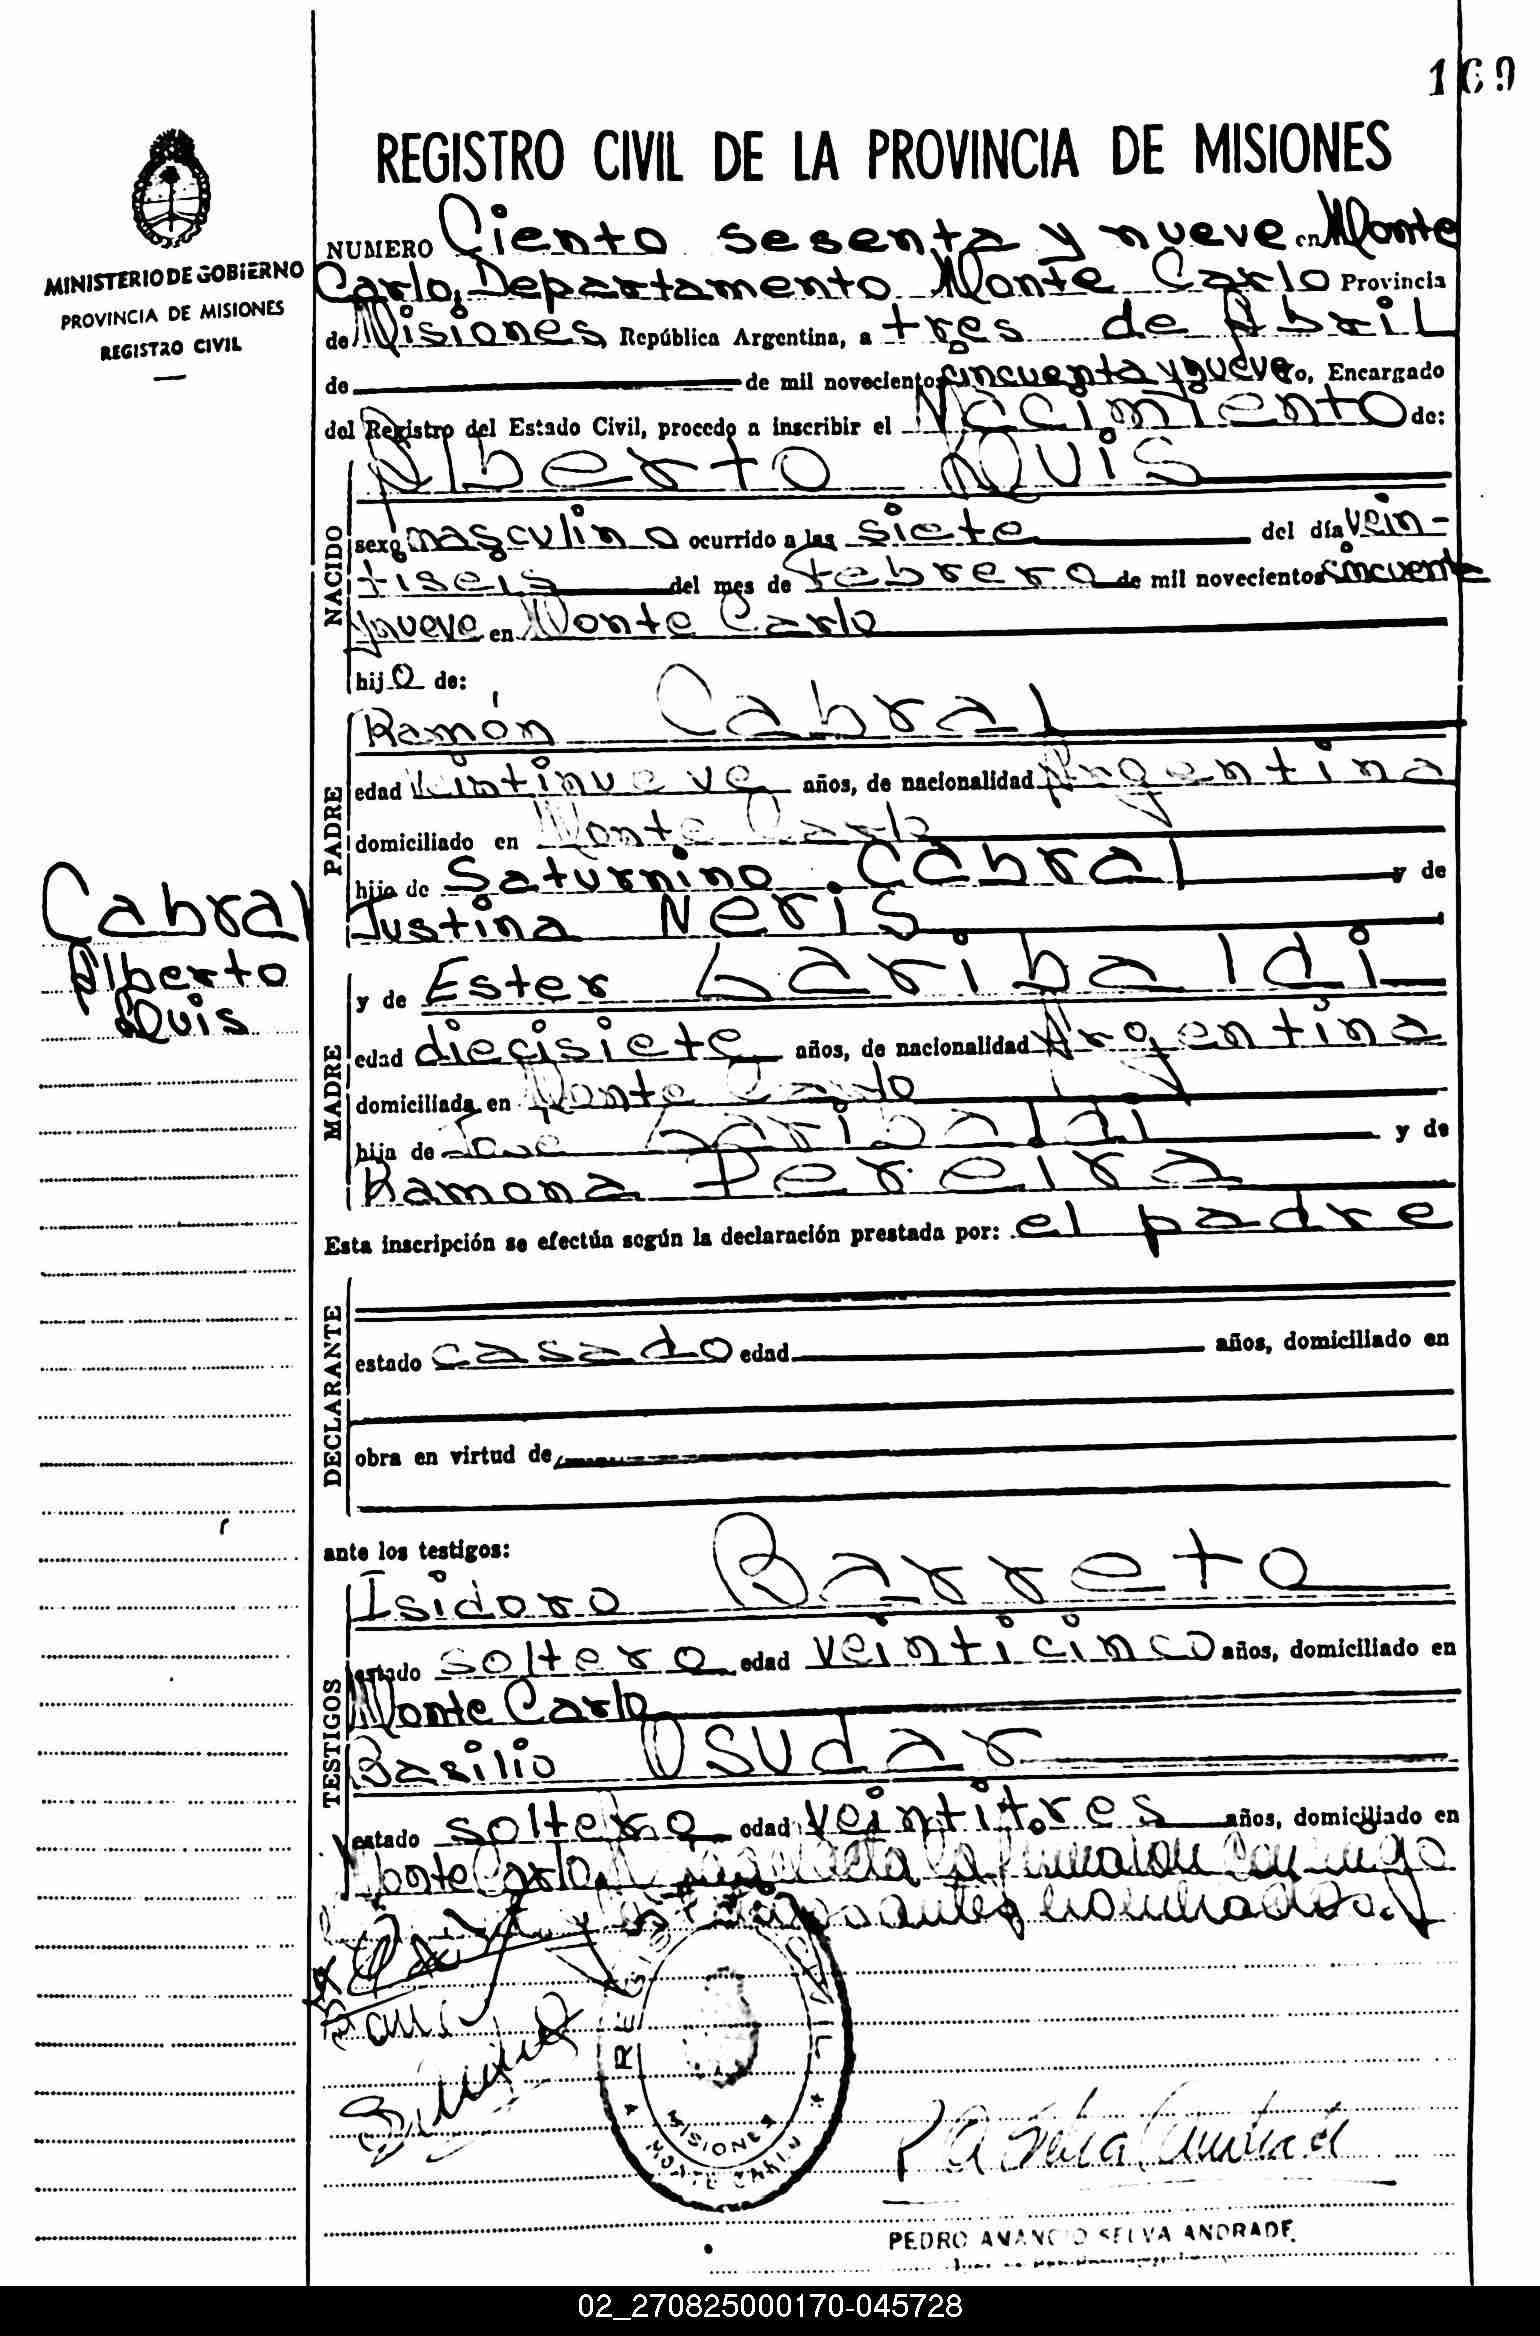 169
REGISTRO CIVIL DE LA PROVINCIA DE MISIONES
MINISTERIO DE GOBIERNO
PROVINCIA DE MISIONES
REGISTRO CIVIL
NUMERO Ciento sesenta y nueve en Monte
Carlo, Departamento Monte Carlo Provincia
de Misiones República Argentina, a tres de Abril
de de mil novecientos cincuenta y nueve Yo, Encargado
del Registro del Estado Civil, procedo a inscribir el Nacimiento de:
Alberto Luis
NACIDO
sexo masculino ocurrido a las siete del día vein-
tiseis del mes de febrero de mil novecientos cincuenta
y nueve en Monte Carlo
hijo de:
PADRE
Ramón Cabral
edad veintinueve años, de nacionalidad Argentina
domiciliado en Monte Carlo
hijo de Saturnino Cabral y de
Justina Neris
Cabral
Alberto
Luis
MADRE
y de Ester Garibaldi
edad diecisiete años, de nacionalidad Argentina
domiciliada en Monte Carlo
hija de José Garibaldi y de
Ramona Pereira
Esta inscripción se efectúa según la declaración prestada por: el padre
DECLARANTE
estado casado edad años, domiciliado en
obra en virtud de
ante los testigos:
TESTIGOS
Isidoro Barreto
estado soltero edad veinticinco años, domiciliado en
Monte Carlo
Basilio Osudar
estado soltero edad veintitres años, domiciliado en
Monte Carlo la firmaron conmigo
testigos antes nombrados.
REGISTRO CIVIL
MISIONES
MONTE CARLO
P A Selva Andrade
PEDRO AMANCIO SELVA ANDRADE
02_270825000170-045728